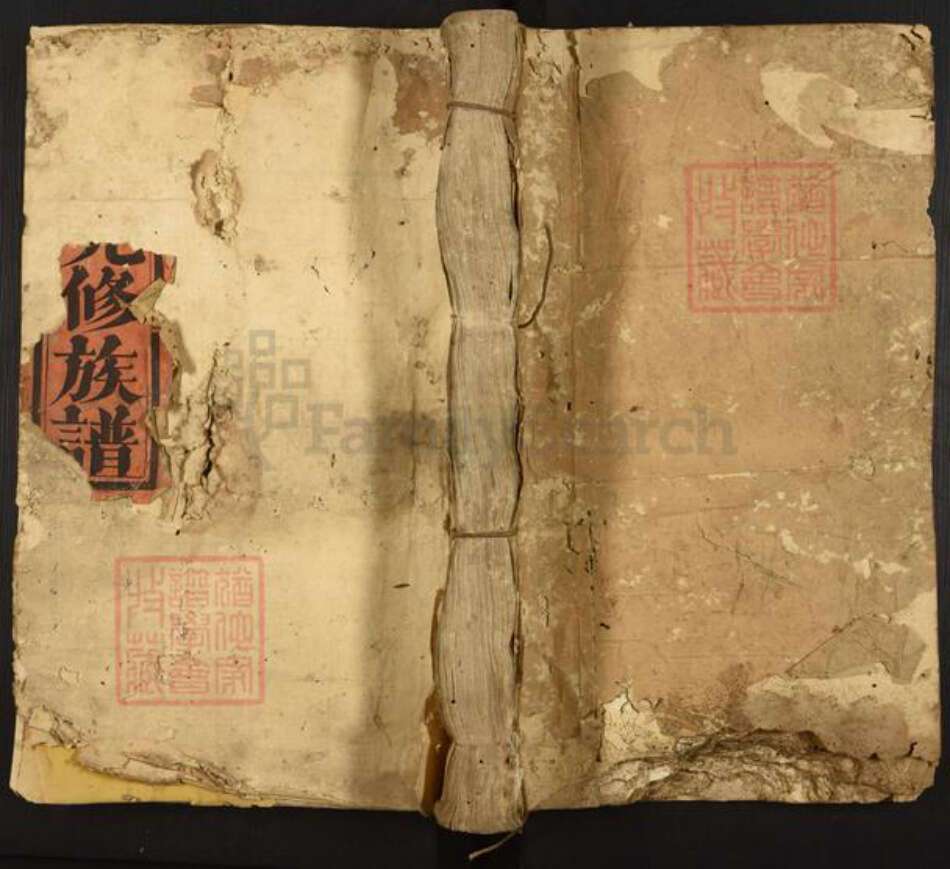 修族譜
猶他家
譜學會
收藏
FamilySearch
猶他家
譜學會
收藏